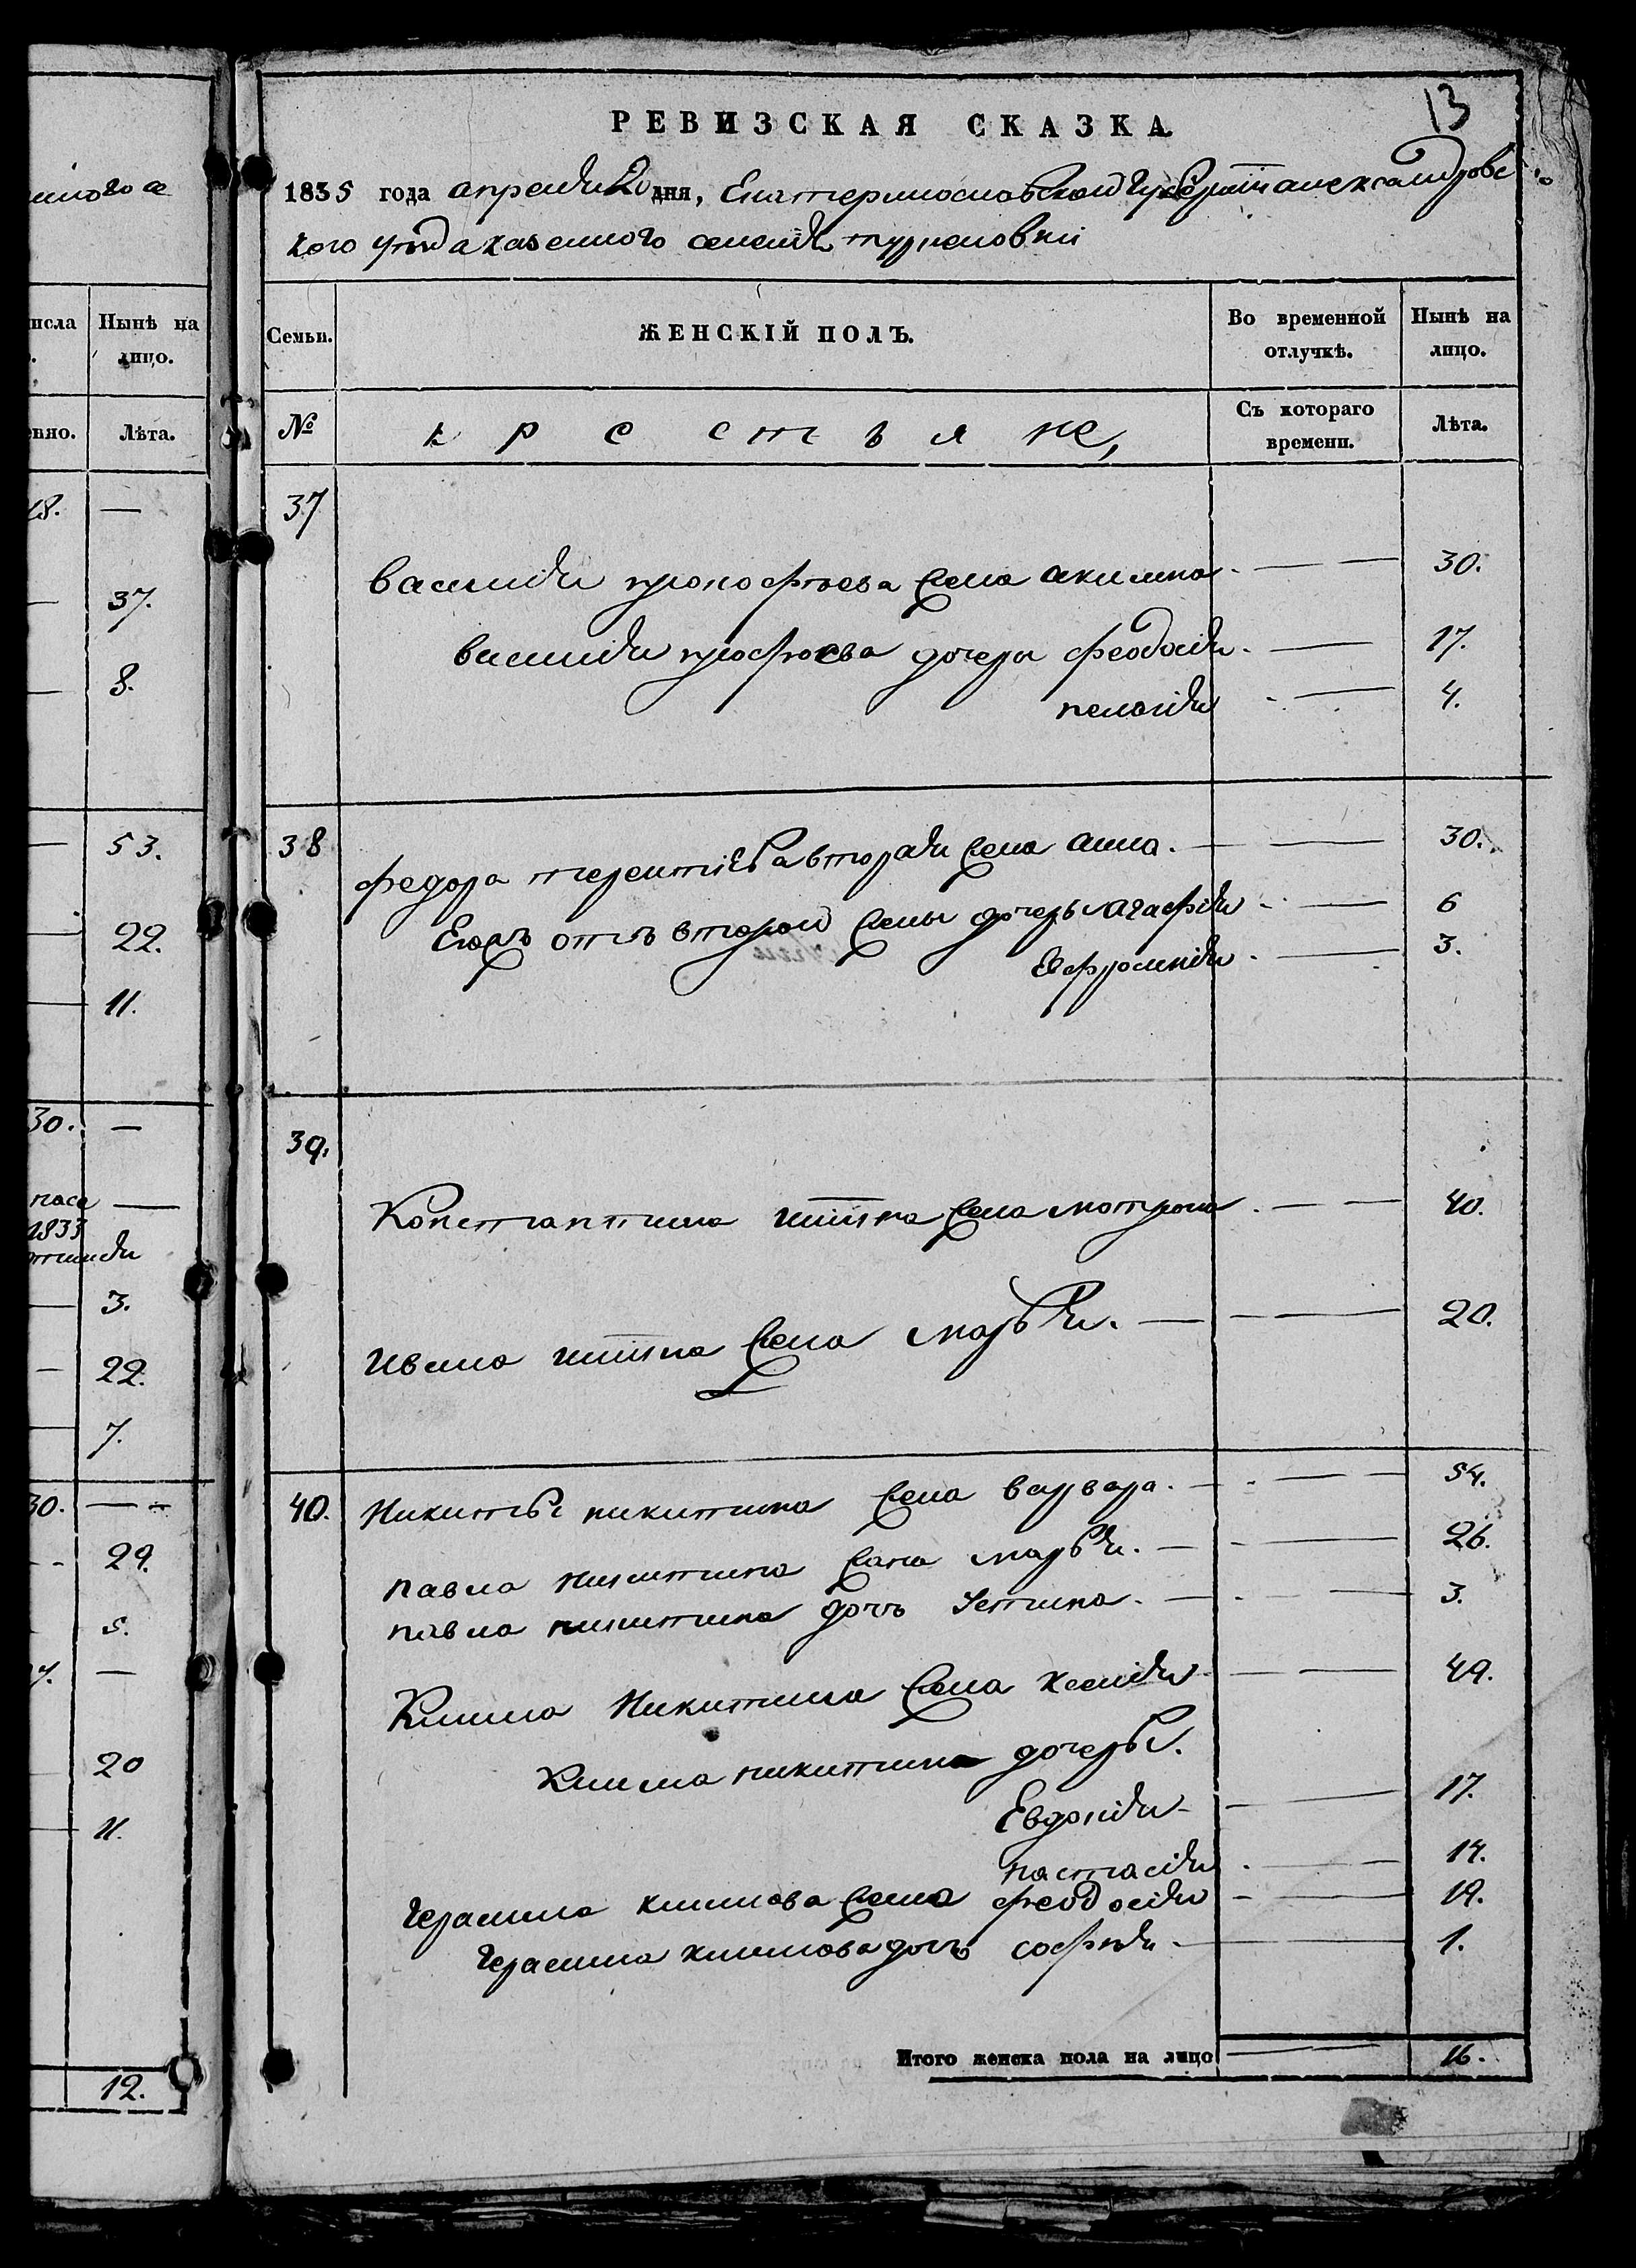 13
РЕВИЗСКАЯ СКАЗКА.
1835 года апреля 20 дня, Екатеринославской Губерніи александровс
кого уезда казенного селенія туркеновки
Семьи.
ЖЕНСКІЙ ПОЛЪ.
Во временной отлучкѣ.
Нынѣ на лицо.
№
крестьяне,
Съ котораго времени.
Лѣта.
37
василия прокофьева жена акилина — 30.
василия профьева дочери феодосия — 17.
пелагия — 4.
38
федора терентієва вторая жена анна. — 30.
Егоръ отъ второй жены дочерь агафия — 6
Ефросиния — 3.
39.
Константина жена мотрона — 40.
Ивана жена марья. — 20.
40. Никиты никитина жена варвара. — 54.
павла никитина жена марья. — 26.
павла никитина дочь Устина. — 3.
Клима Никитина жена ксения — 49.
Клима никитина дочеры.
Евдокия — 17.
настасия — 14.
Герасима климова жена феодосия — 19.
Герасима климова дочь софия — 1.
Итого женска пола на лицо — 16.
Нынѣ на лицо.
Лѣта.
18. —
37.
8.
53.
22.
11.
30. —
1833
3.
22.
7.
30. —
29.
5.
—
20
11.
12.